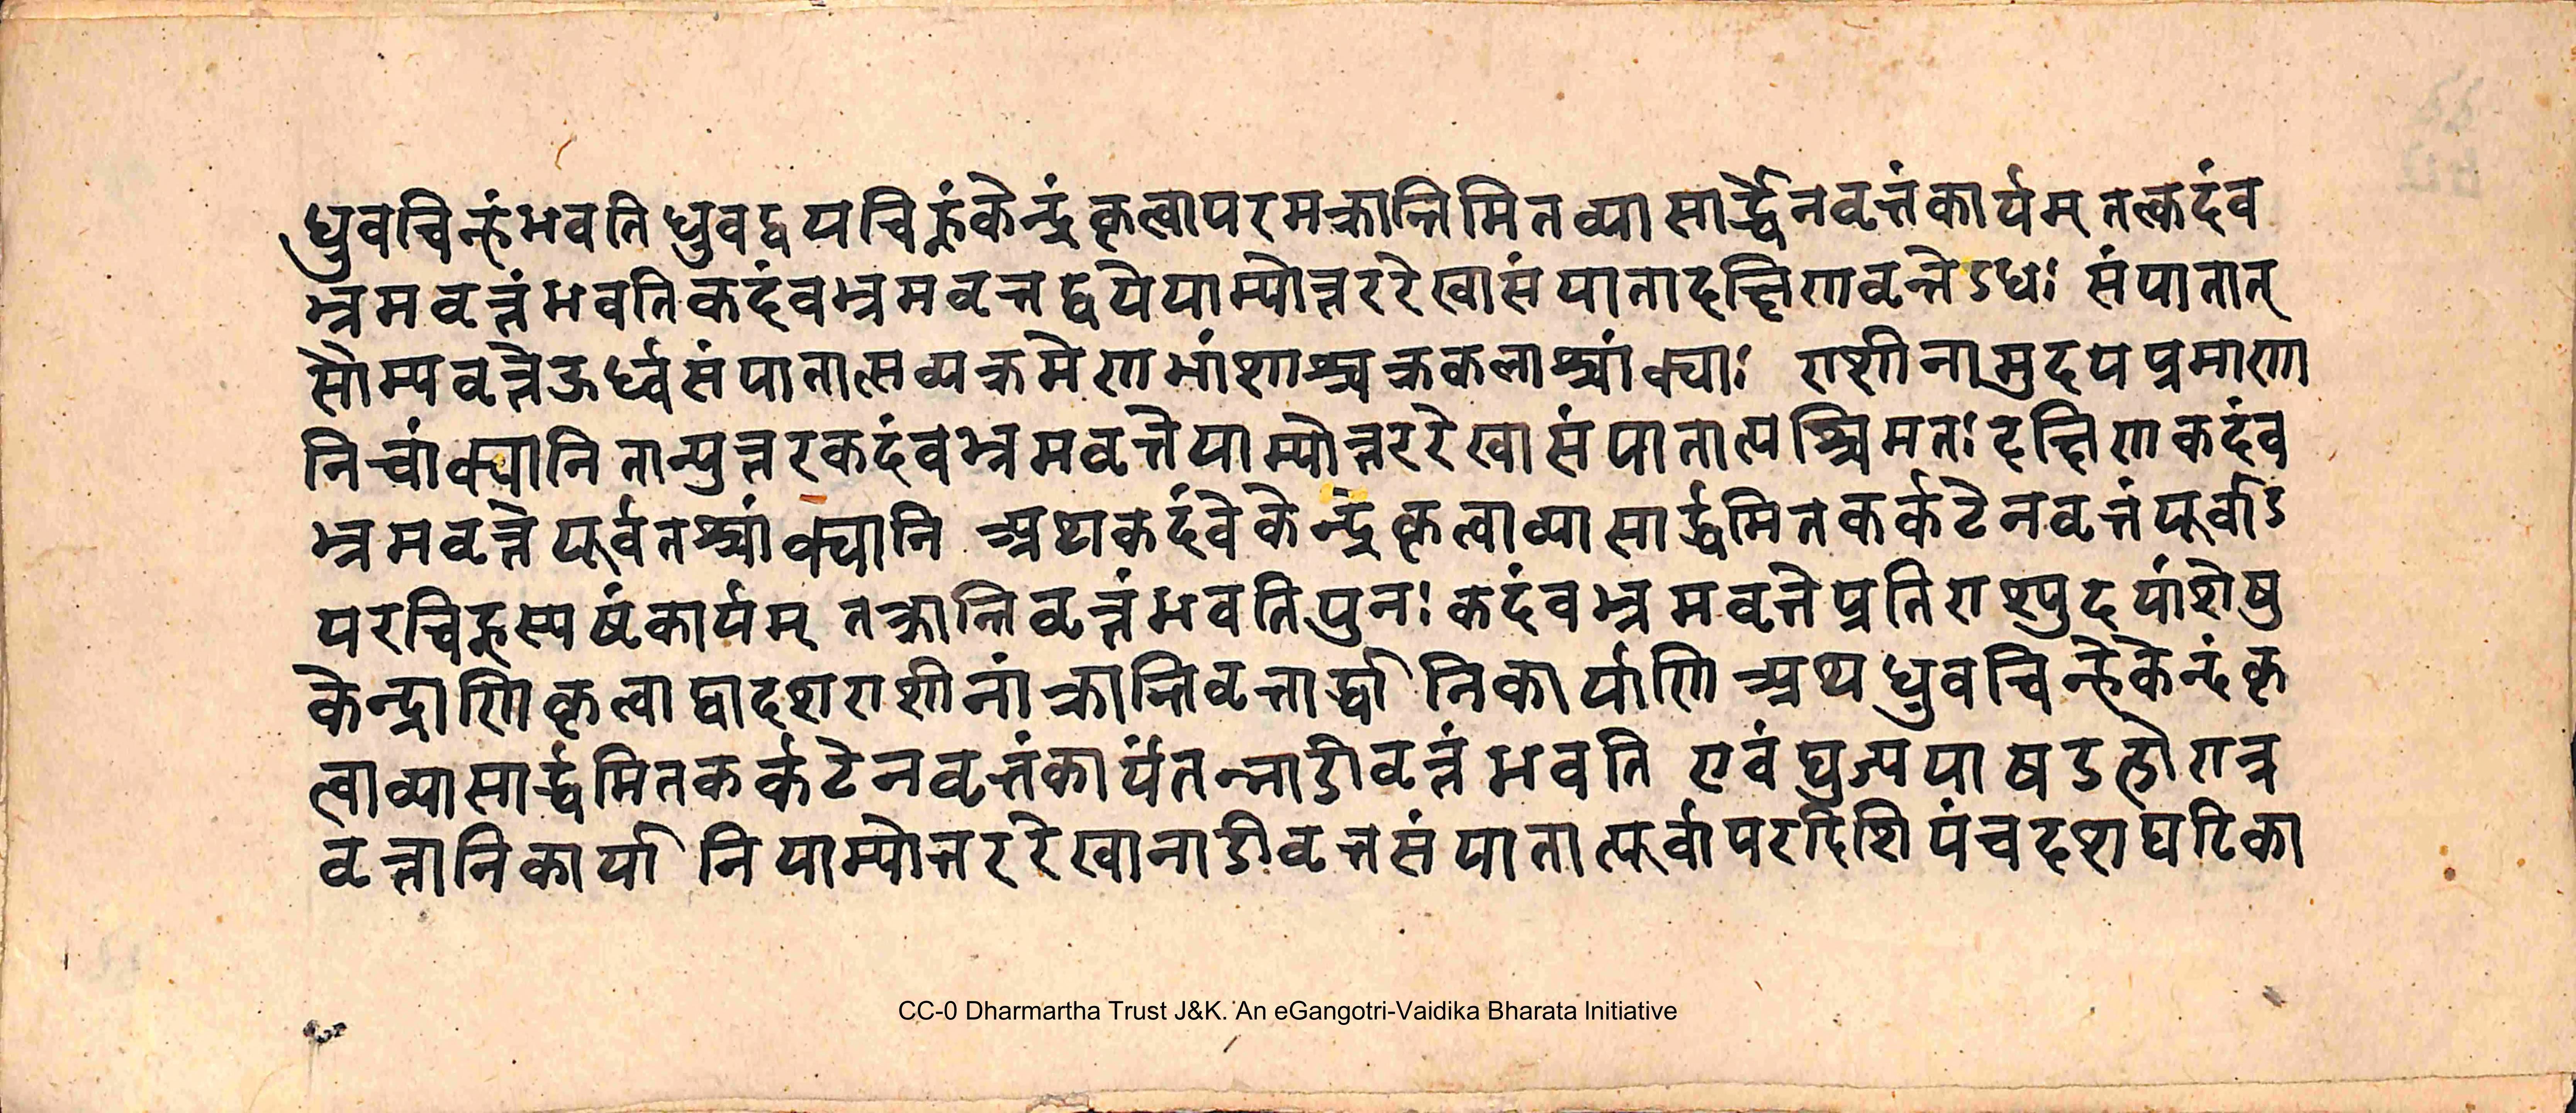 ध्रुवचिन्हंभवतिध्रुवद्वयचिह्नंकेन्द्रंकृत्वापरमक्रान्तिमितव्यासार्द्धेनवृत्तंकार्यम् तत्कदंव
भ्रमवृत्तंभवतिकदंवभ्रमवृत्तद्वयेयाम्योत्तररेखासंपाताद्दक्षिणवृत्तेऽधः संपातात्
सौम्यवृत्तेऊर्ध्वसंपातात्सव्यक्रमेणभांशाश्चक्रकलाश्चांक्याः राशीनामुदयप्रमाणा
निचांक्यानितान्युत्तरकदंवभ्रमवृत्तेयाम्योत्तररेखासंपातात्पश्चिमतः दक्षिणकदंव
भ्रमवृत्तेपूर्वतश्चांक्यानि अथकदंवेकेन्द्रेकृत्वाव्यासार्द्धमितकर्कटेनवृत्तंपूर्वाऽ
परचिह्नस्पष्टंकार्यम् तत्क्रान्तिवृत्तंभवतिपुनः कदंवभ्रमवृत्तेप्रतिराश्युदयांशेषु
केन्द्राणिकृत्वाद्वादशराशीनांक्रान्तिवृत्तार्द्धानिकार्याणि अथध्रुवचिन्हेकेन्द्रंकृ
त्वाव्यासार्द्धमितकर्कटेनवृत्तंकार्यंतन्नाडीवृत्तंभवति एवंद्युज्यया षडहोरात्र
वृत्तानिकार्यानियाम्योत्तररेखानाडीवृत्तसंपातात्पूर्वापरदिशिपंचदशघटिका
CC-0 Dharmartha Trust J&K. An eGangotri-Vaidika Bharata Initiative